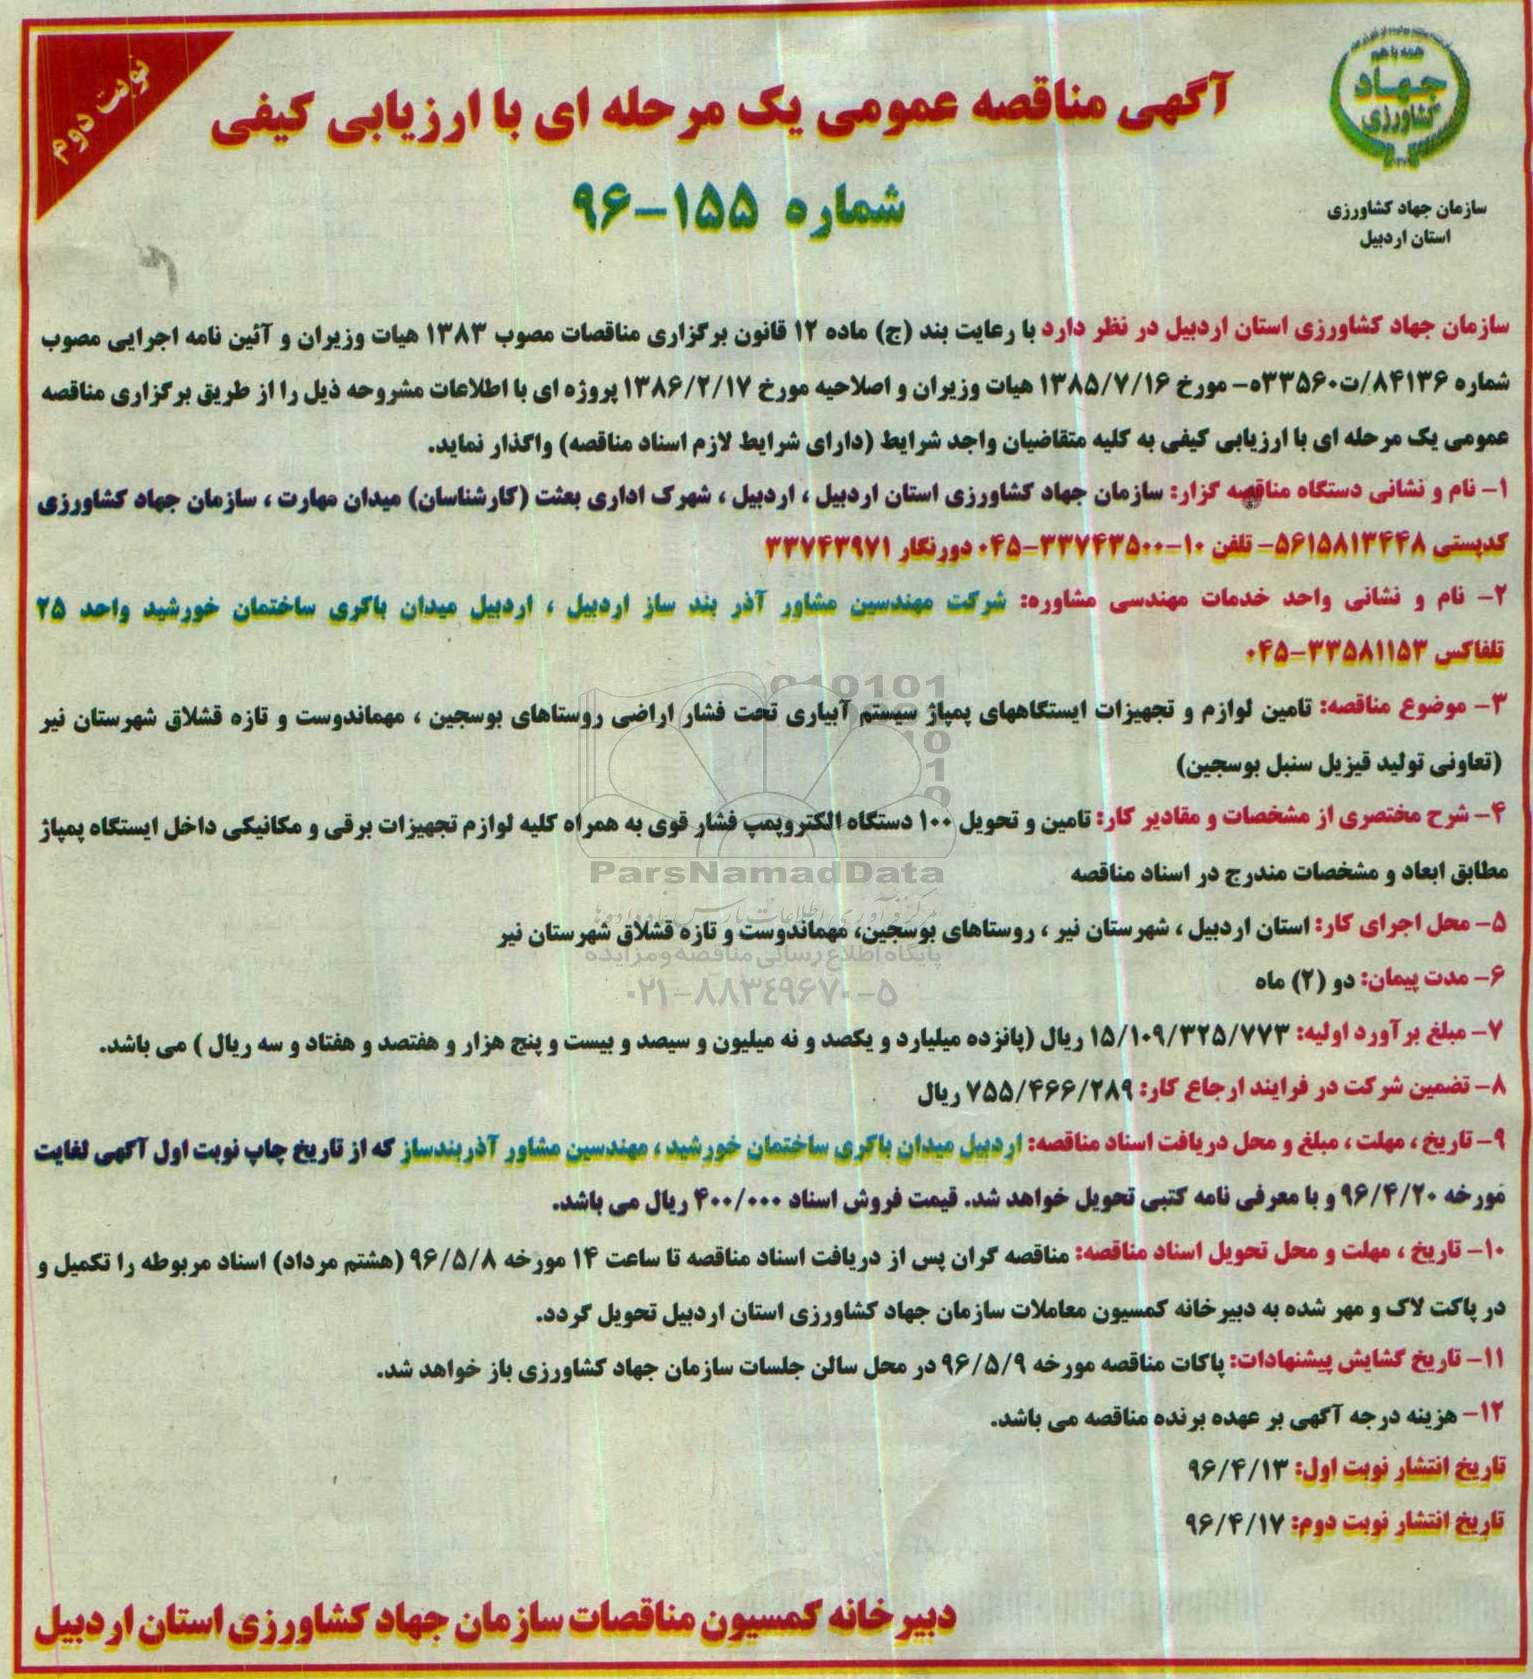 نوبت دوم
همه با هم
جهاد
کشاورزی
سازمان جهاد کشاورزی
استان اردبیل
آگهی مناقصه عمومی یک مرحله ای با ارزیابی کیفی
شماره ۱۵۵-۹۶
سازمان جهاد کشاورزی استان اردبیل در نظر دارد با رعایت بند (ج) ماده ۱۲ قانون برگزاری مناقصات مصوب ۱۳۸۳ هیات وزیران و آئین نامه اجرایی مصوب
شماره ۸۴۱۳۶/ت۳۳۵۶۰ه- مورخ ۱۳۸۵/۷/۱۶ هیات وزیران و اصلاحیه مورخ ۱۳۸۶/۲/۱۷ پروژه ای با اطلاعات مشروحه ذیل را از طریق برگزاری مناقصه
عمومی یک مرحله ای با ارزیابی کیفی به کلیه متقاضیان واجد شرایط (دارای شرایط لازم اسناد مناقصه) واگذار نماید.
۱- نام و نشانی دستگاه مناقصه گزار: سازمان جهاد کشاورزی استان اردبیل ، اردبیل ، شهرک اداری بعثت (کارشناسان) میدان مهارت ، سازمان جهاد کشاورزی
کدپستی ۵۶۱۵۸۱۳۴۴۸- تلفن ۱۰-۳۳۷۴۳۵۰۰-۰۴۵ دورنگار ۳۳۷۴۳۹۷۱
۲- نام و نشانی واحد خدمات مهندسی مشاوره: شرکت مهندسین مشاور آذر بند ساز اردبیل ، اردبیل میدان باکری ساختمان خورشید واحد ۲۵
تلفاکس ۳۳۵۸۱۱۵۳-۰۴۵
۳- موضوع مناقصه: تامین لوازم و تجهیزات ایستگاههای پمپاژ سیستم آبیاری تحت فشار اراضی روستاهای بوسجین ، مهماندوست و تازه قشلاق شهرستان نیر
(تعاونی تولید قیزیل سنبل بوسجین)
۴- شرح مختصری از مشخصات و مقادیر کار: تامین و تحویل ۱۰۰ دستگاه الکتروپمپ فشار قوی به همراه کلیه لوازم تجهیزات برقی و مکانیکی داخل ایستگاه پمپاژ
مطابق ابعاد و مشخصات مندرج در اسناد مناقصه
ParsNamadData
۵- محل اجرای کار: استان اردبیل ، شهرستان نیر ، روستاهای بوسجین، مهماندوست و تازه قشلاق شهرستان نیر
پایگاه اطلاع رسانی مناقصه و مزایده
۶- مدت پیمان: دو (۲) ماه
۰۲۱-۸۸۳۴۹۶۷۰-۵
۷- مبلغ برآورد اولیه: ۱۵/۱۰۹/۳۲۵/۷۷۳ ریال (پانزده میلیارد و یکصد و نه میلیون و سیصد و بیست و پنج هزار و هفتصد و هفتاد و سه ریال ) می باشد.
۸- تضمین شرکت در فرایند ارجاع کار: ۷۵۵/۴۶۶/۲۸۹ ریال
۹- تاریخ ، مهلت ، مبلغ و محل دریافت اسناد مناقصه: اردبیل میدان باکری ساختمان خورشید ، مهندسین مشاور آذربندساز که از تاریخ چاپ نوبت اول آگهی لغایت
مورخه ۹۶/۴/۲۰ و با معرفی نامه کتبی تحویل خواهد شد. قیمت فروش اسناد ۴۰۰/۰۰۰ ریال می باشد.
۱۰- تاریخ ، مهلت و محل تحویل اسناد مناقصه: مناقصه گران پس از دریافت اسناد مناقصه تا ساعت ۱۴ مورخه ۹۶/۵/۸ (هشتم مرداد) اسناد مربوطه را تکمیل و
در پاکت لاک و مهر شده به دبیرخانه کمسیون معاملات سازمان جهاد کشاورزی استان اردبیل تحویل گردد.
۱۱- تاریخ گشایش پیشنهادات: پاکات مناقصه مورخه ۹۶/۵/۹ در محل سالن جلسات سازمان جهاد کشاورزی باز خواهد شد.
۱۲- هزینه درجه آگهی بر عهده برنده مناقصه می باشد.
تاریخ انتشار نوبت اول: ۹۶/۴/۱۳
تاریخ انتشار نوبت دوم: ۹۶/۴/۱۷
دبیرخانه کمسیون مناقصات سازمان جهاد کشاورزی استان اردبیل